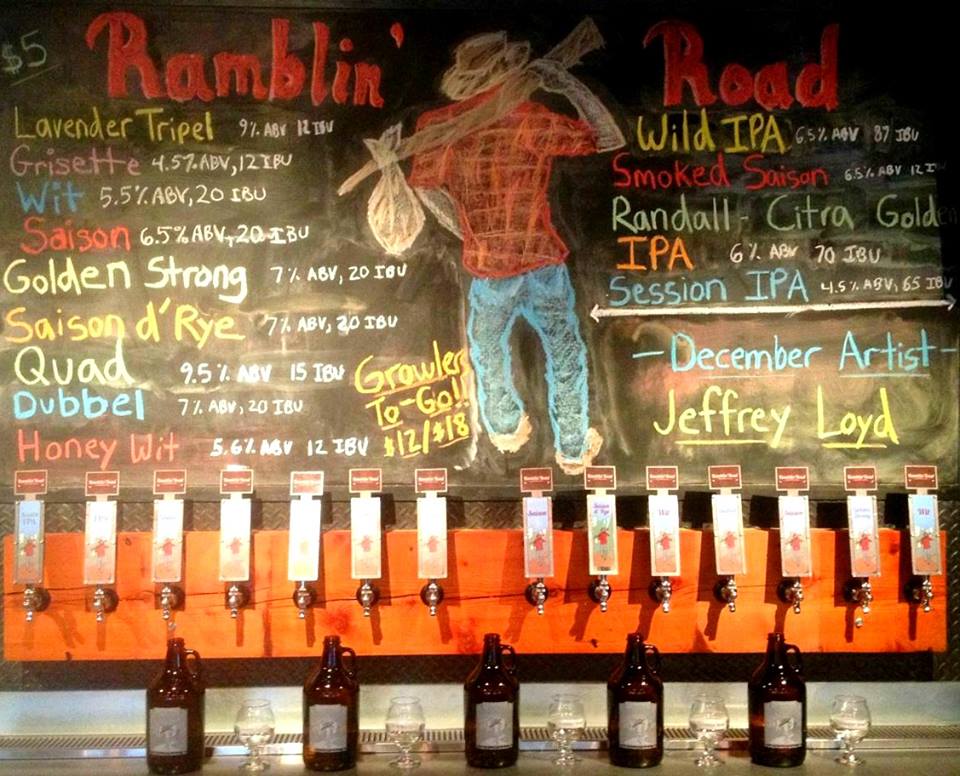 $5
Ramblin' Road
Lavender Tripel 9% ABV 12 IBU
Grisette 4.5% ABV, 12 IBU
Wit 5.5% ABV, 20 IBU
Saison 6.5% ABV, 20 IBU
Golden Strong 7% ABV, 20 IBU
Saison d'Rye 7% ABV, 20 IBU
Quad 9.5% ABV 15 IBU
Dubbel 7% ABV, 20 IBU
Honey Wit 5.6% ABV 12 IBU
Growlers
To-Go!!
$12/$18
Wild IPA 6.5% ABV 87 IBU
Smoked Saison 6.5% ABV 12 I
Randall - Citra Golden
IPA 6% ABV 70 IBU
Session IPA 4.5% ABV, 65 IBU
- December Artist -
Jeffrey Loyd
IPA
Saison
Saison d'Rye
Wit
Saison
Wit